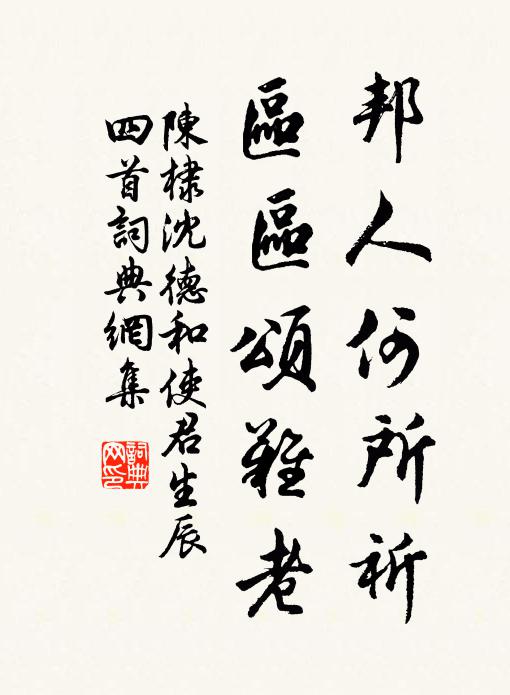 邦人何所祈
區區頌難老
陳棣沈德和使君生辰
四首詞典網集
詞典
网印